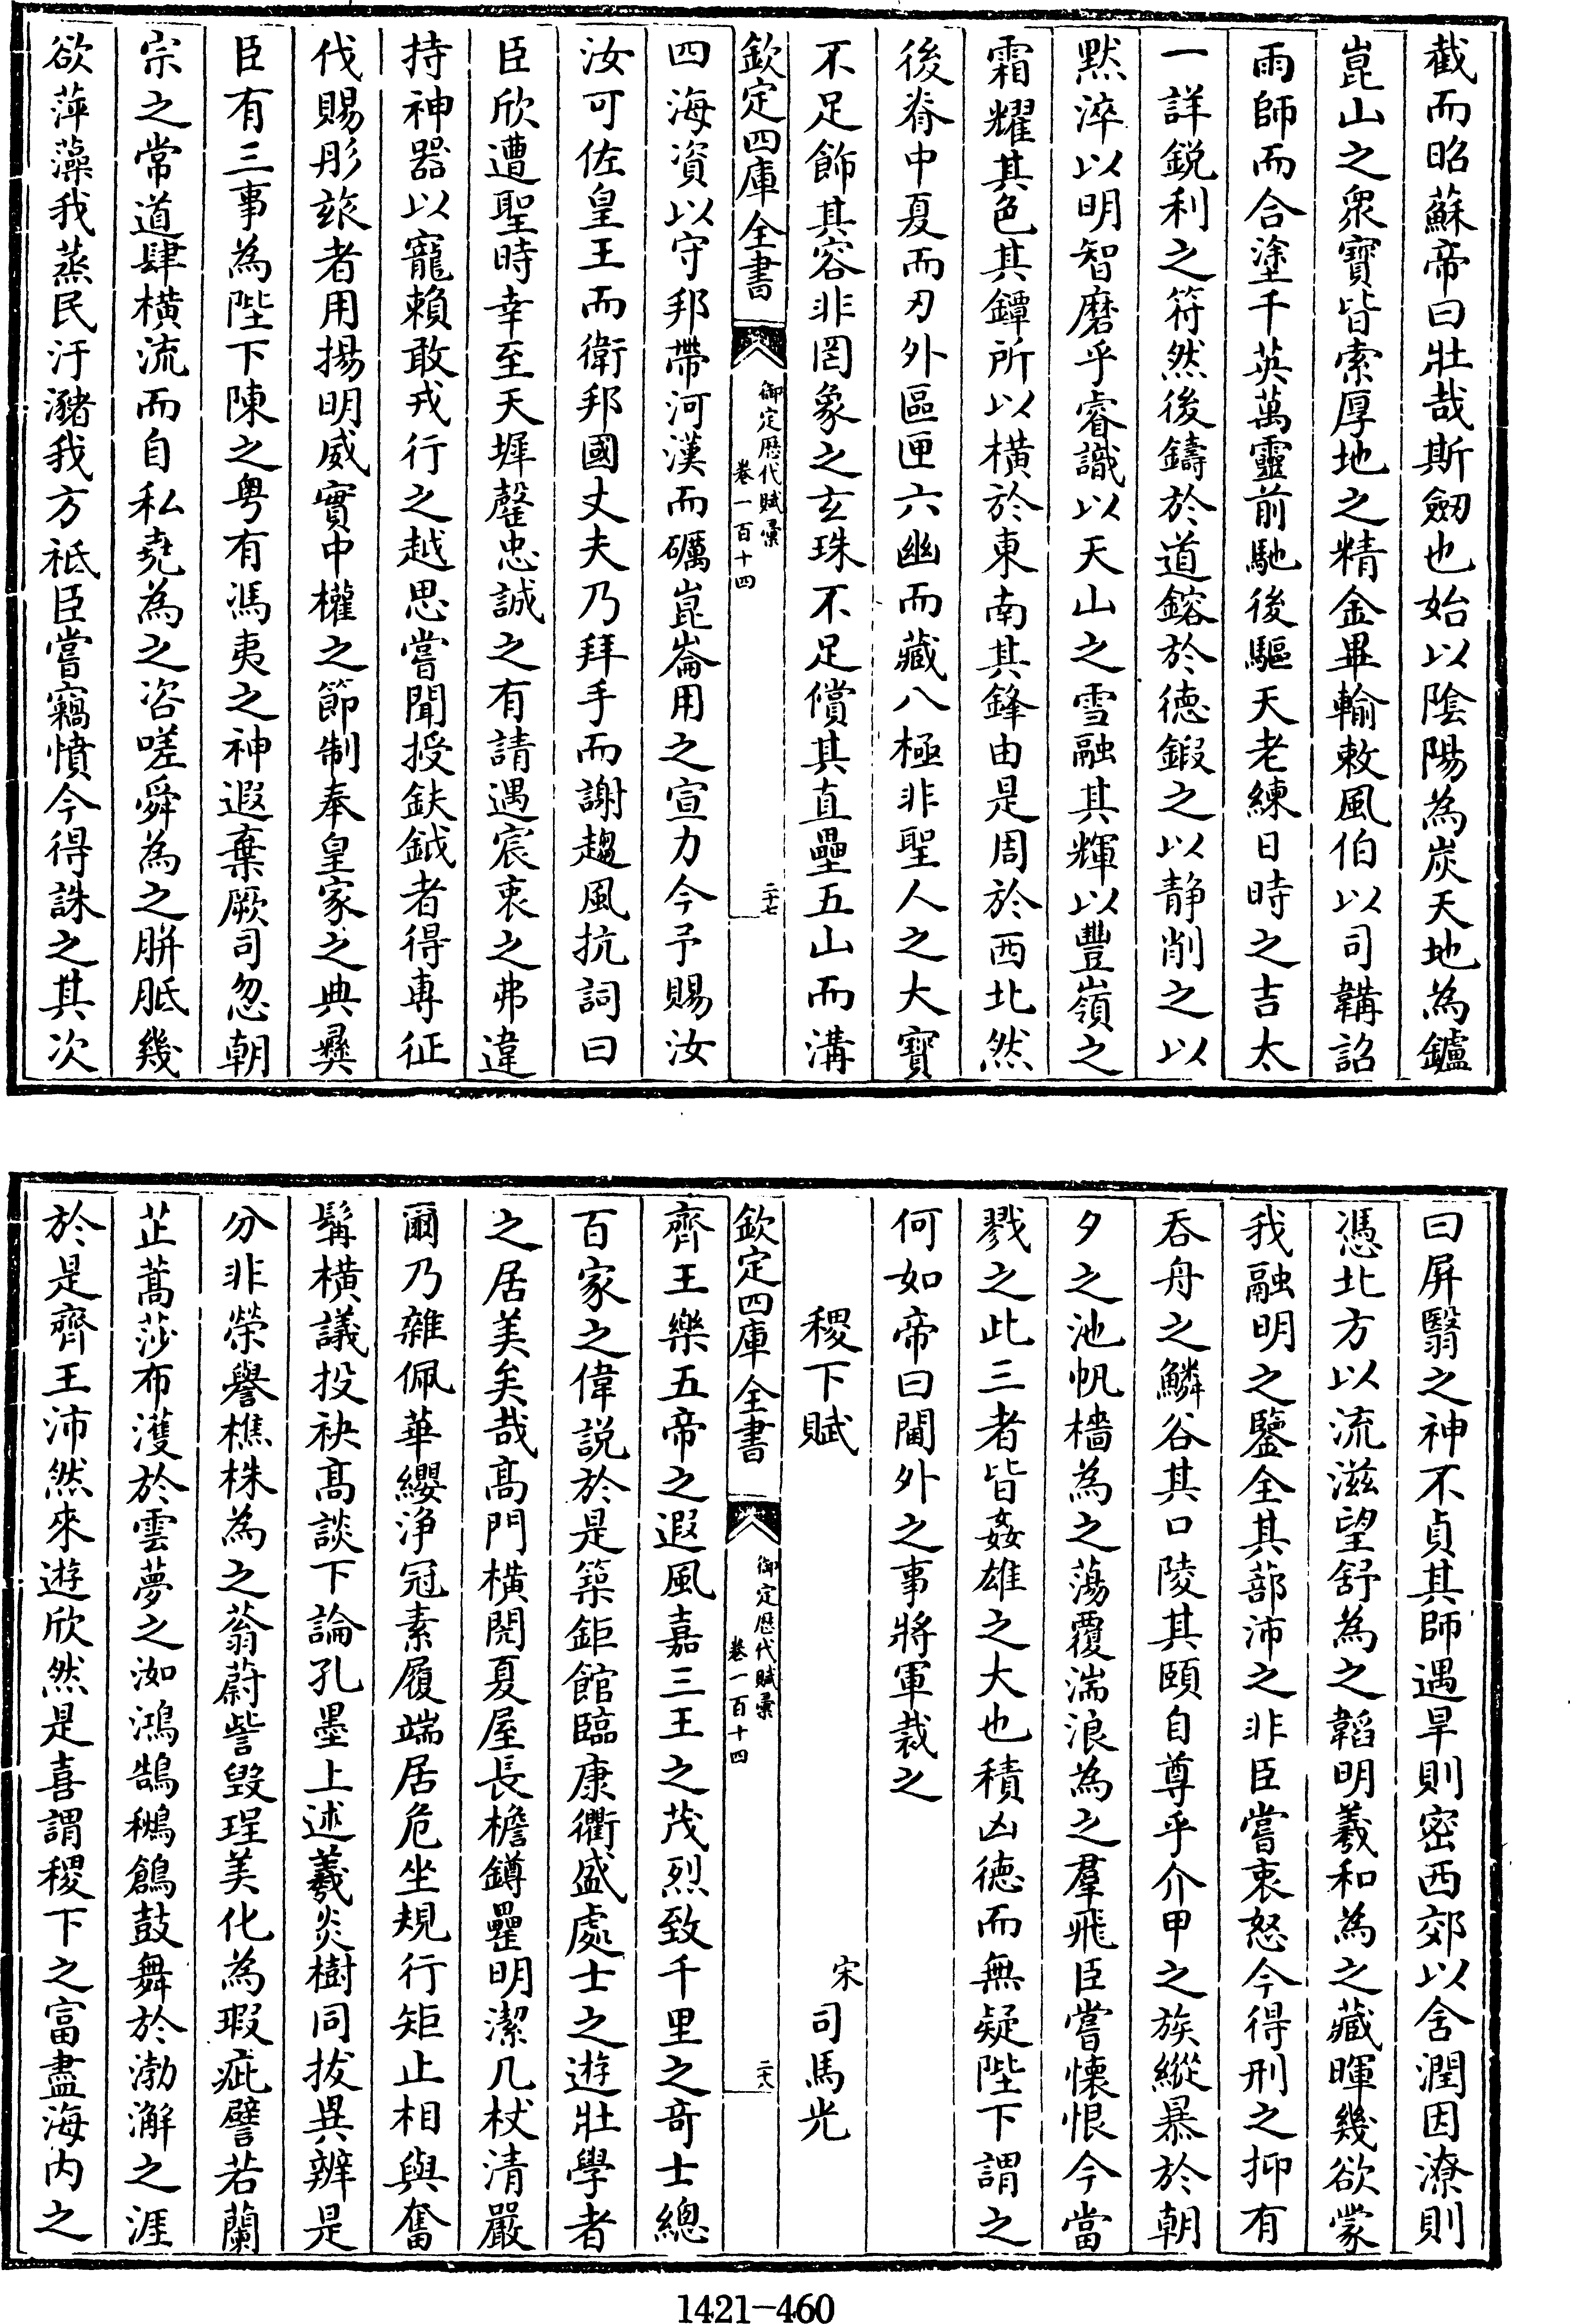 截而昭蘇帝曰壯哉斯劒也始以陰陽為炭天地為鑪
崑山之衆寳皆索厚地之精金畢輸敕風伯以司韝詔
雨師而合塗千英萬靈前馳後驅天老練日時之吉太
一詳銳利之符然後鑄於道鎔於徳鍛之以静削之以
黙淬以明智磨乎睿識以天山之雪融其輝以豐嶺之
霜耀其色其鐔所以横於東南其鋒由是周於西北然
後脊中夏而刃外區匣六幽而藏八極非聖人之大寳
不足飾其容非罔象之玄珠不足償其直壘五山而溝
欽定四庫全書
御定歴代賦彚
卷一百十四
二十七
四海資以守邦帶河漢而礪崑崙用之宣力今予賜汝
汝可佐皇王而衛邦國丈夫乃拜手而謝趨風抗詞曰
臣欣遭聖時幸至天墀罄忠誠之有請遇宸衷之弗違
持神器以寵賴敢戎行之越思嘗聞授鈇鉞者得専征
伐賜彤玈者用揚明威實中權之節制奉皇家之典彞
臣有三事為陛下陳之粤有馮夷之神遐棄厥司忽朝
宗之常道肆横流而自私堯為之咨嗟舜為之胼胝幾
欲萍藻我蒸民汙瀦我方祗臣嘗竊憤今得誅之其次
曰屏翳之神不貞其師遇旱則密西郊以含潤因潦則
憑北方以流滋望舒為之韜明羲和為之藏暉幾欲蒙
我融明之鑒全其蔀沛之非臣嘗衷怒今得刑之抑有
吞舟之鱗谷其口陵其頤自尊乎介甲之族縱暴於朝
夕之池帆檣為之蕩覆湍浪為之羣飛臣嘗懐恨今當
戮之此三者皆姦雄之大也積凶徳而無疑陛下謂之
何如帝曰閫外之事將軍裁之
稷下賦
宋司馬光
欽定四庫全書
御定歴代賦彚
卷一百十四
二十八
齊王樂五帝之遐風嘉三王之茂烈致千里之奇士總
百家之偉説於是築鉅館臨康衢盛處士之遊壯學者
之居美矣哉髙門横閌夏屋長檐鐏罍明潔几杖清嚴
爾乃雜佩華纓淨冠素履端居危坐規行矩止相與奮
髯横議投袂髙談下論孔墨上述羲炎樹同拔異辨是
分非榮譽樵株為之蓊蔚訾毀珵美化為瑕疵譬若蘭
芷蒿莎布濩於雲夢之洳鴻鵠鶖鶬鼓舞於渤澥之涯
於是齊王沛然來遊欣然是喜謂稷下之富盡海内之
1421-460